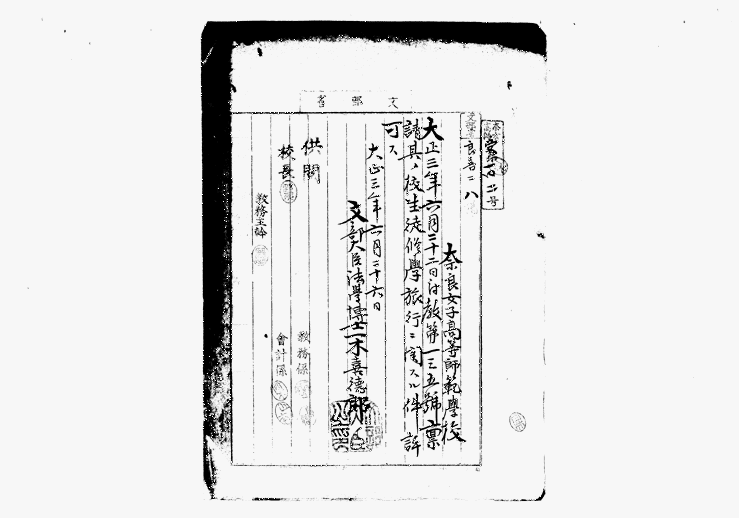 文部省
奈良女子高等師範學校
大正三年六月二十二日付教第一三五號稟
請其ノ校生徒修學旅行ニ関スル件許
可ス
大正三年六月二十六日
文部大臣法學博士一木喜德郎
供閲
校長
教務主幹
教務係
會計係